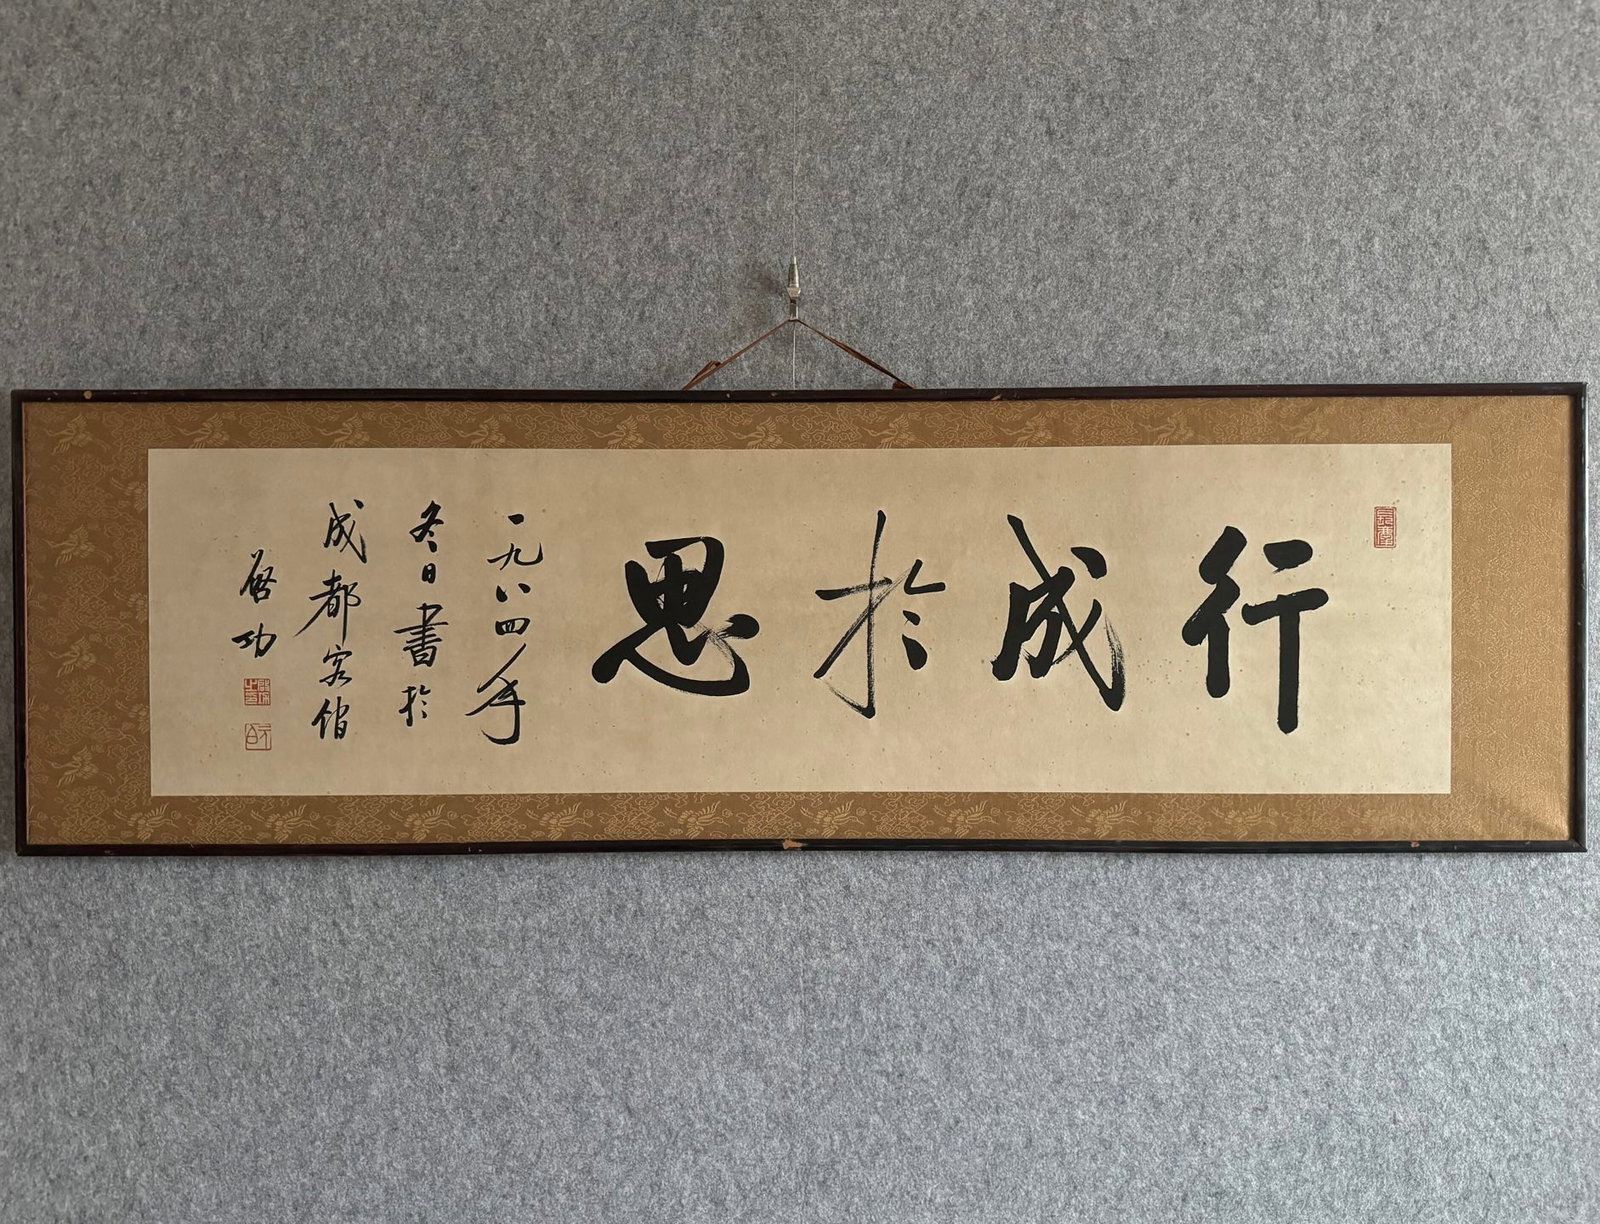 行成於思
一九八四年
冬日書於
成都客館
啓功